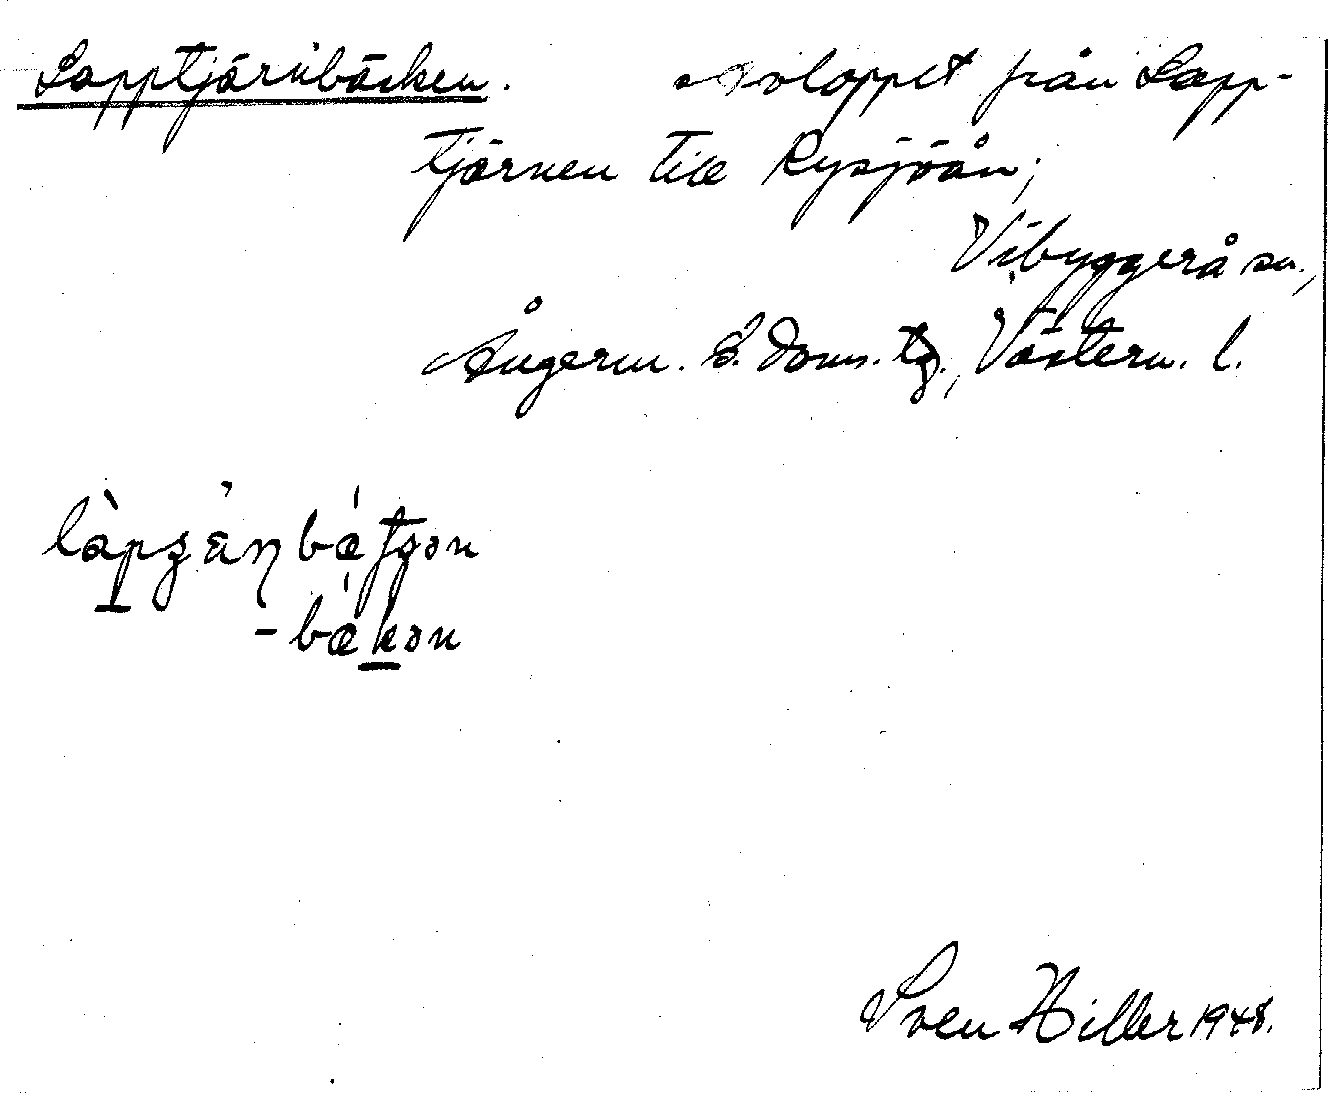 Lapptjärnbäcken. Avloppet från Lapp-
tjärnen till Rysjöån;
Vibyggerå sn.,
Ångerm. S. doms. tg., Västern. l.
-bækən
Sven Hiller 1948.